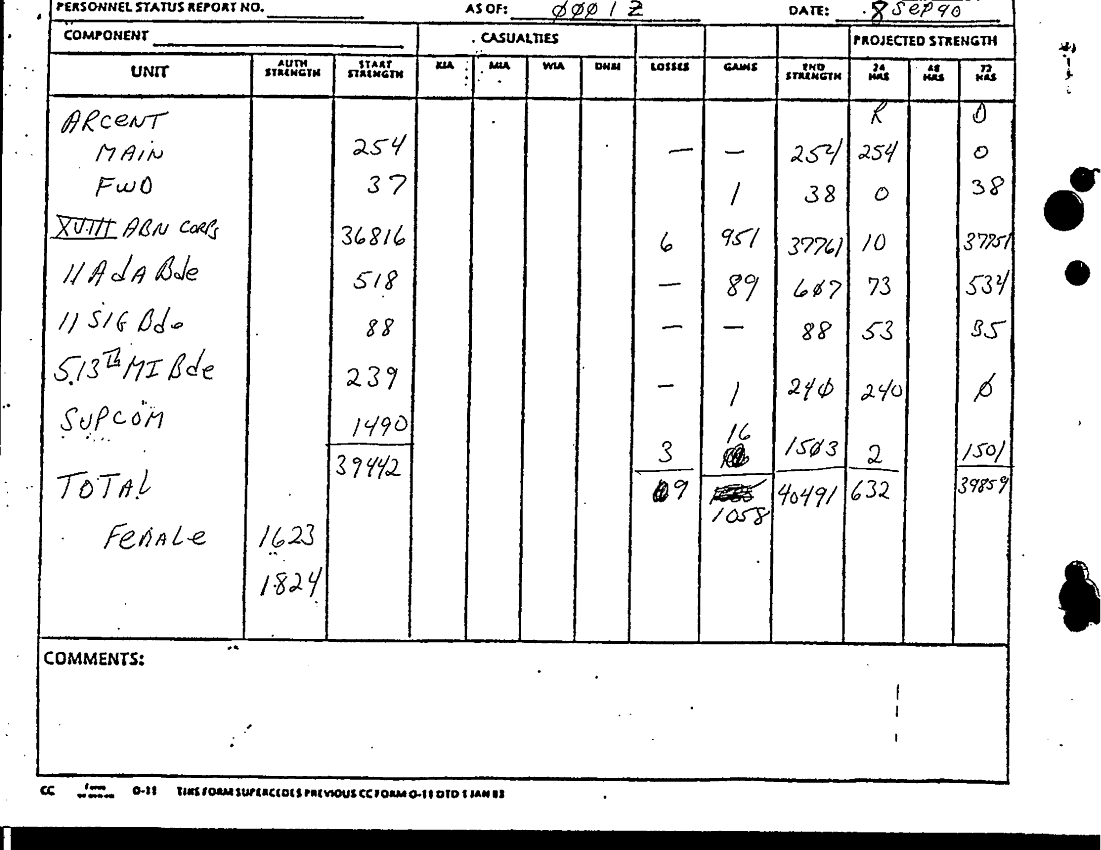 PERSONNEL STATUS REPORT NO. AS OF: ØØØ1Z DATE: 8 SEP 90
COMPONENT CASUALTIES PROJECTED STRENGTH
UNIT AUTH STRENGTH START STRENGTH KIA MIA WIA DNBI LOSSES GAINS END STRENGTH 24 HRS 48 HRS 72 HRS
ARCENT R D
MAIN 254 — — 254 254 0
FWD 37 1 38 0 38
XVIII ABN CORPS 36816 6 951 37761 10 37751
11 AdA Bde 518 — 89 6Ø7 73 534
11 SIG Bde 88 — — 88 53 35
513th MI Bde 239 — 1 24Ø 240 Ø
SUPCOM 1490 3 16 15Ø3 2 1501
TOTAL 39442 9 1058 40491 632 39859
FEMALE 1623
1824
COMMENTS:
CC Form O-11 THIS FORM SUPERCEDES PREVIOUS CC FORM O-11 DTD 1 JAN 83